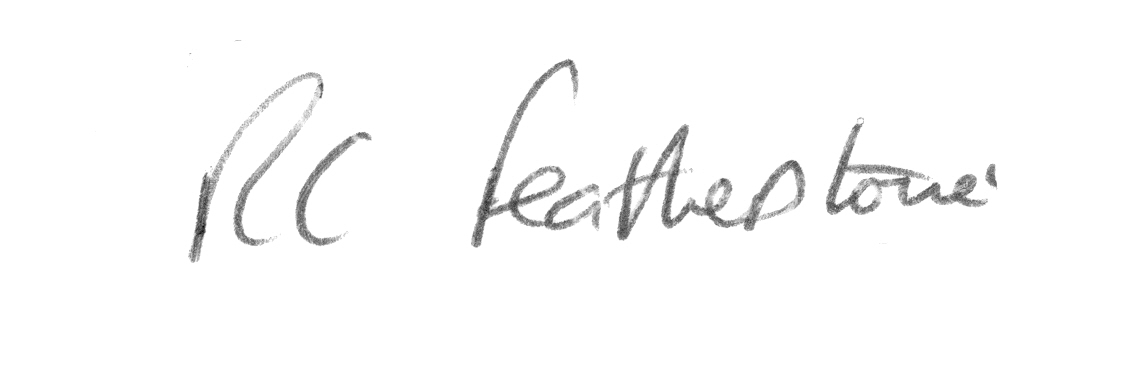 RC Featherstone